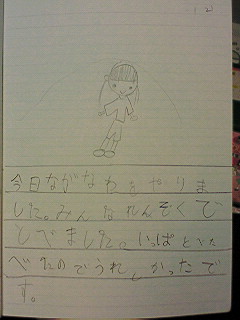 今日ながなわをやりま
した。みんなれんぞくで
とべました。いっぱとべた
べたのでうれしかったで
す。